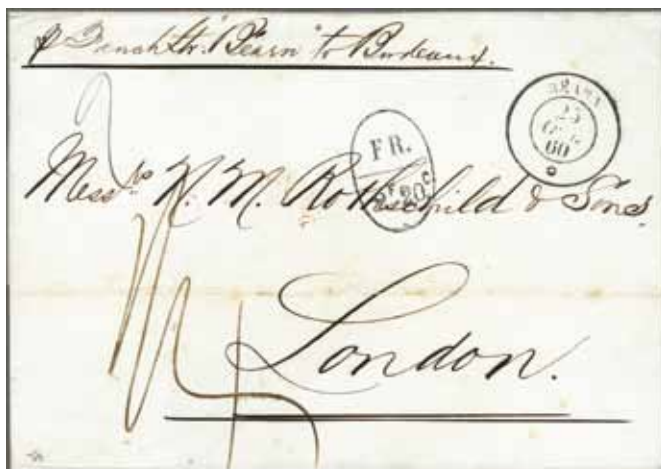 p French Str. "Béarn" to Bordeaux.
BÉARN
25
OCT.
60
FR.
2F 20C
Messrs N. M. Rothschild & Sons
London.